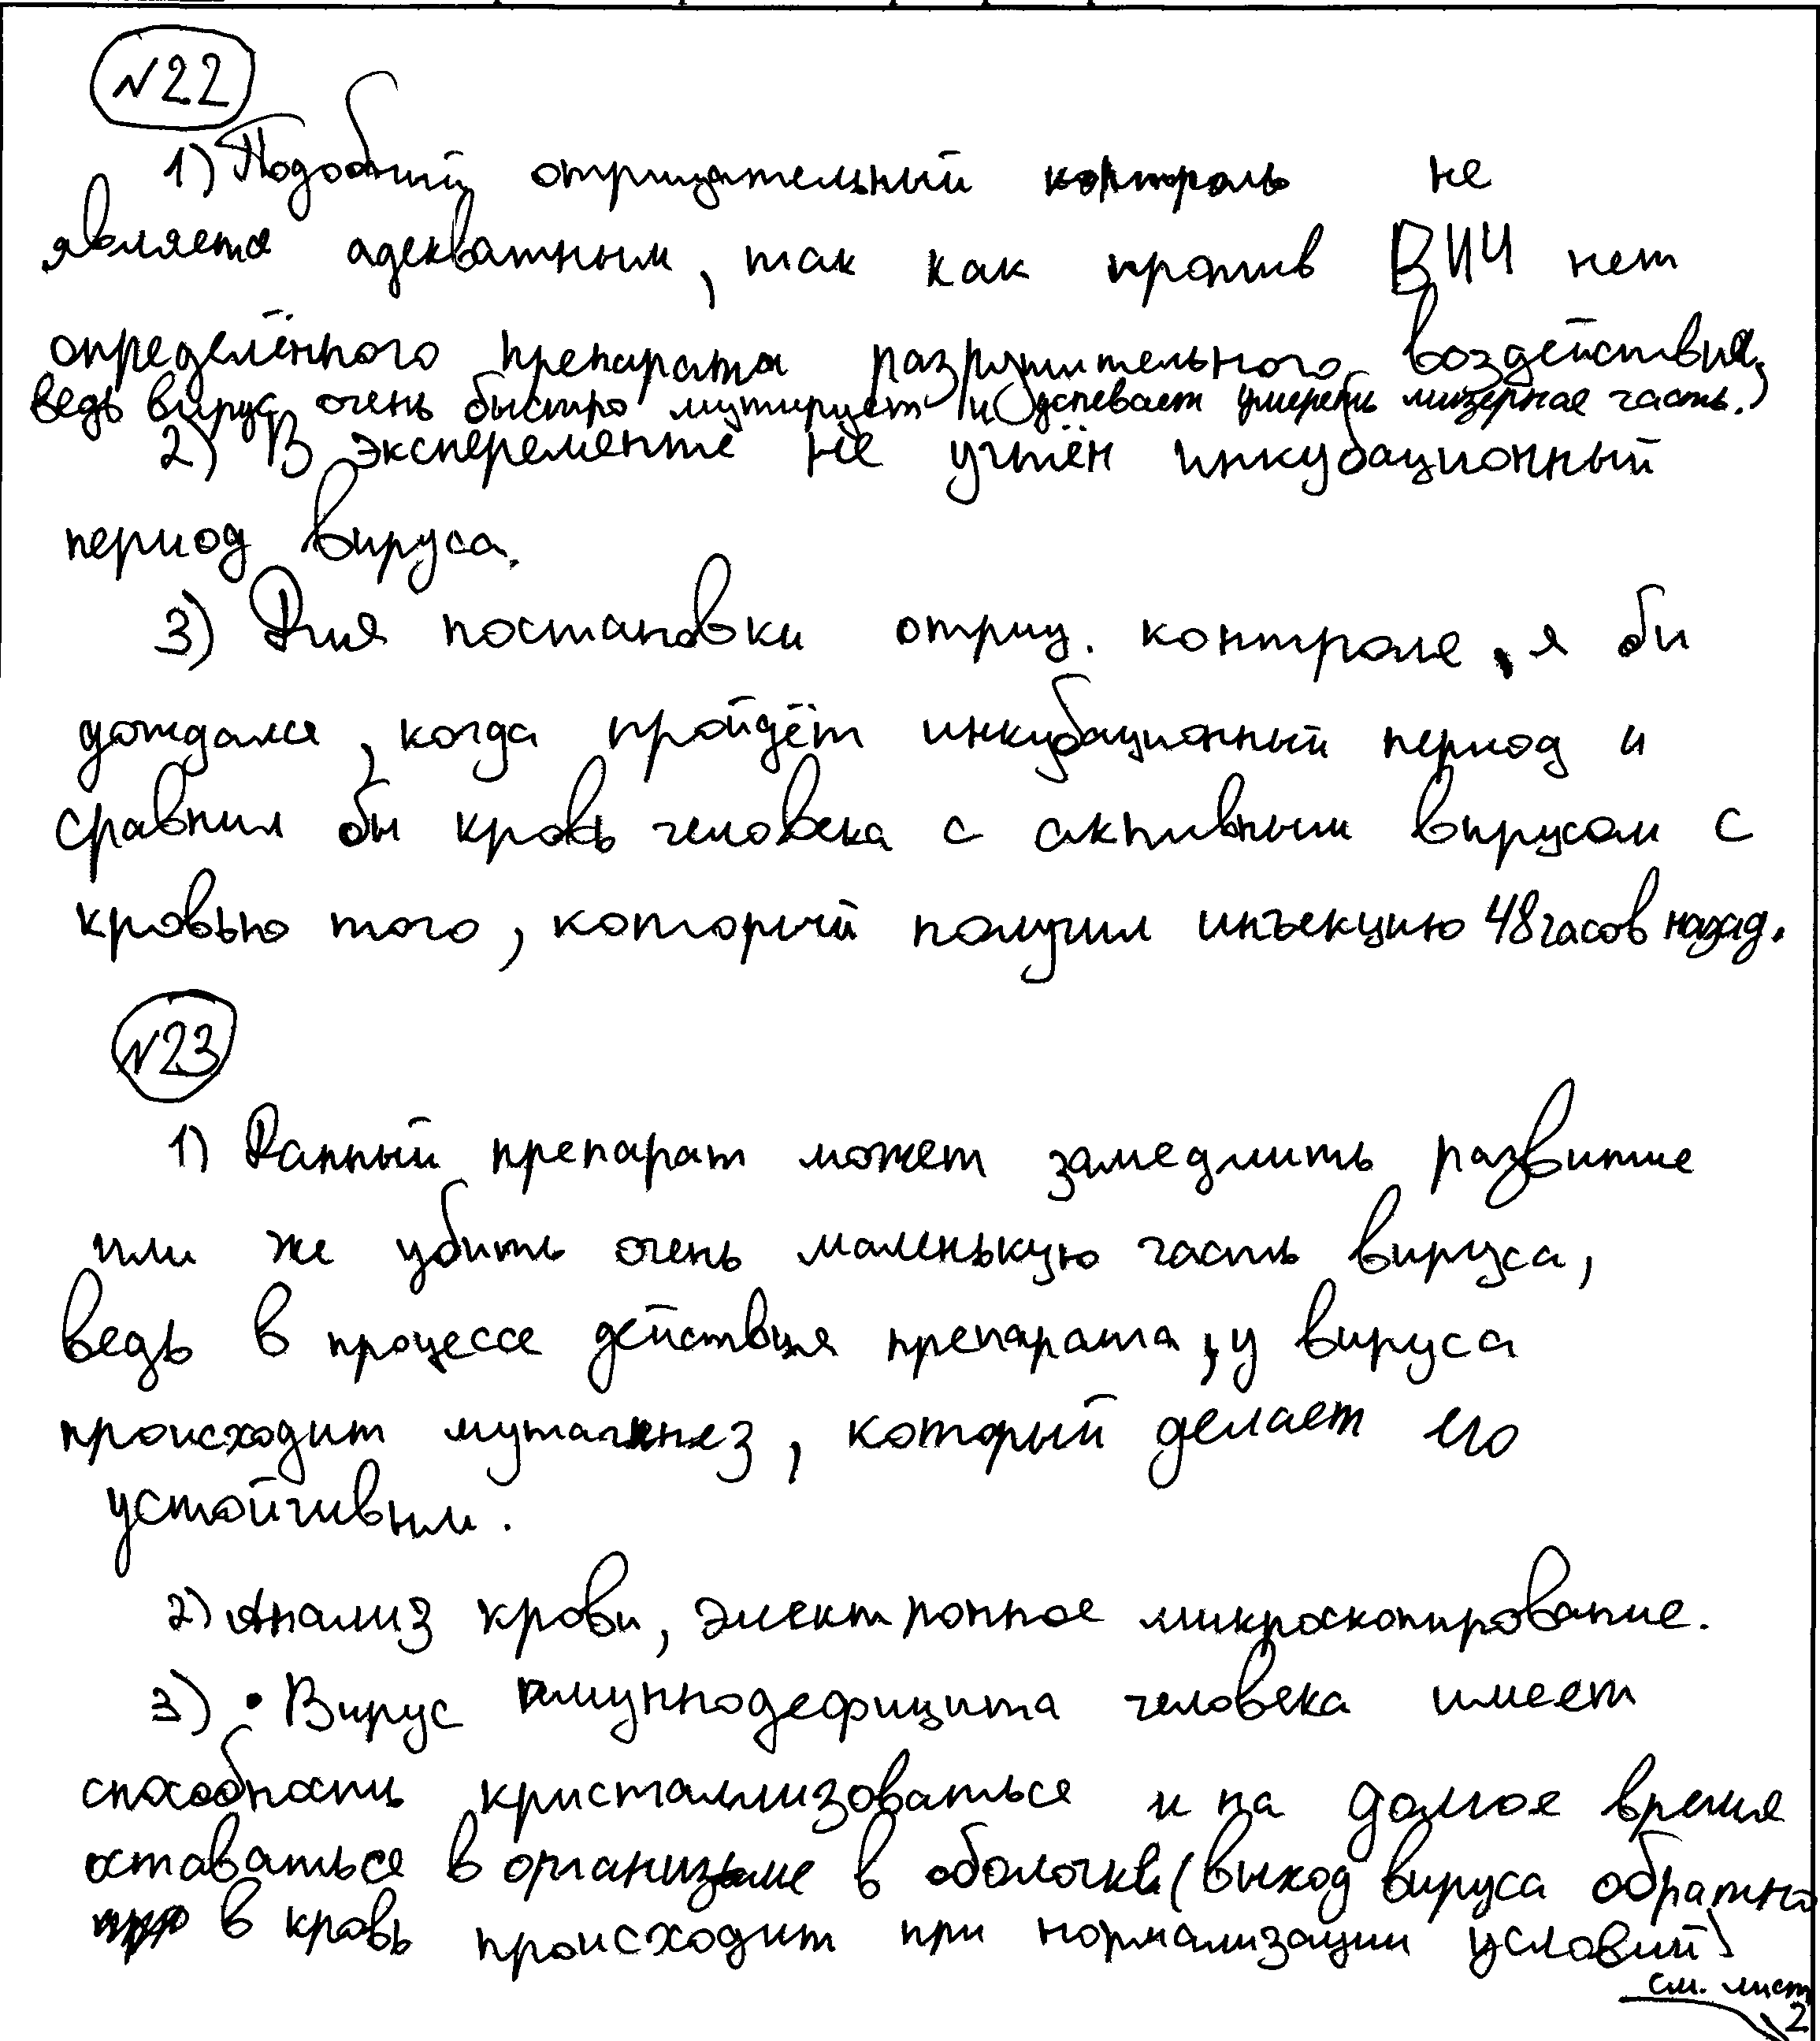 №22
1) Подобный отрицательный контроль не
является адекватным, так как против ВИЧ нет
определённого препарата разрушительного воздействия,
ведь вирус очень быстро мутирует и успевает умереть мизерная часть.
2) В эксперементе не учтён инкубационный
период вируса.
3) Для постановки отриц. контроля, я бы
дождался, когда пройдёт инкубационный период и
сравнил бы кровь человека с активным вирусом с
кровью того, который получил инъекцию 48 часов назад.
№23
1) Данный препарат может замедлить развитие
или же убить очень маленькую часть вируса,
ведь в процессе действия препарата, у вируса
происходит мутагенез, который делает его
устойчивым.
2) Анализ крови, электронное микроскопирование.
3) • Вирус иммуннодефицита человека имеет
способность кристаллизоваться и на долгое время
оставаться в организме в оболочке (выход вируса обратно
в кровь происходит при нормализации условий)
см. лист
2